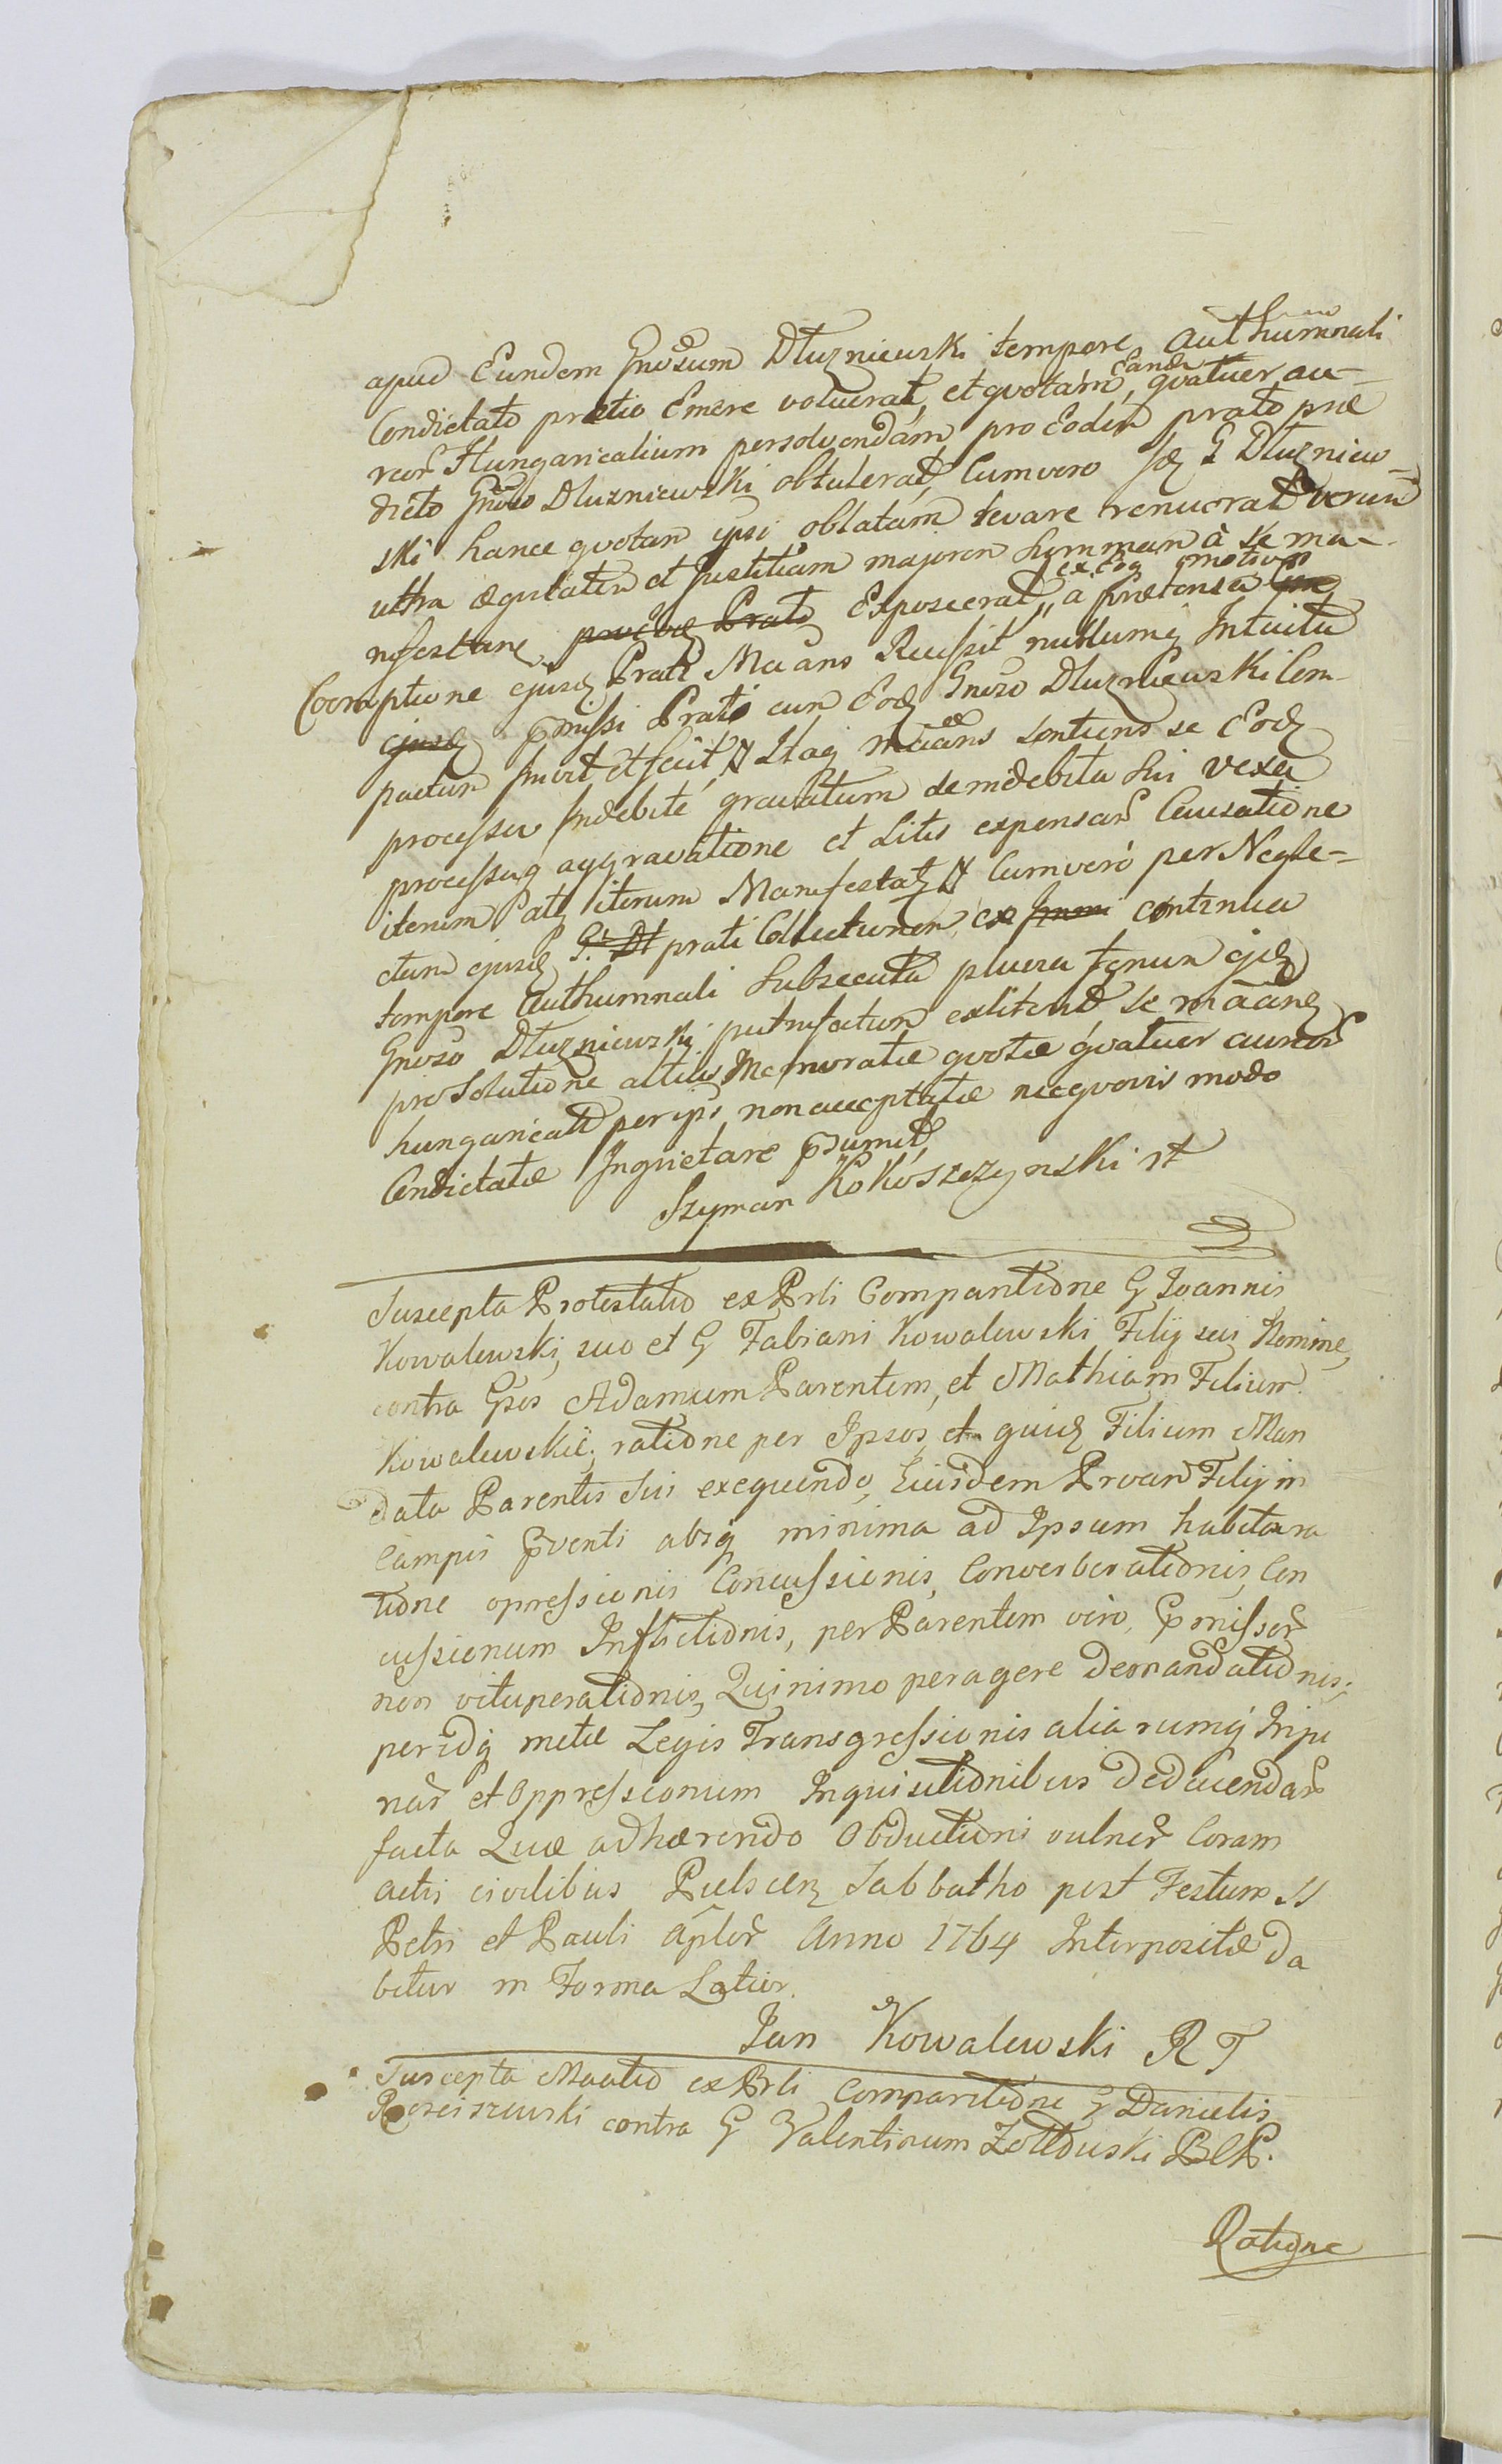 apud Eundem Gnosum Dłuzniewski tempore Authumnali
Condictato pretio Emere voluerat, et qvotam Eand qvatuer au-
reor Hungaricalium persolvendam pro Eodem prato prae
dicto Gnoso Dluzniewski obtulerat, Cumvero Id G Dluzniew-
ski hance qvotam ipsi oblatam levare renuerat verum
ultra aeqvitatem et Justitiam majorem Summam à se ma-
nifestane Prato Exposcerat, ex eoq motivo a praetensa
Coemptione ejusd Prati Maans Recessit nullumq Intuitu
ejusd pmissi Prati cum Eod Gnoso Dluzniewski Com-
pactum Inivit et fecit, Itaq maans sentiens se Eod
processu Indebité gravatum de indebita Sui vexa
processuq aggravatione et Litis expensar Causatione
iterum atq iterum Manifestat Cumveró per Negle-
ctam ejusd G. Dł prati Collectionem ex continua
tempore Authumnali Subsecuta pluvia faenum ejd
Gnoso Dłuzniewski putrefactum extiterit se maane
pro Solutione altius Memoratae qvotae qvatuer aureor
hungarical per ips non acceptatae necqvovis modo
Condictatae Inqvietare psumit,
Szyman Kokoszczynski rt
Suscepta Protestatio ex Prli Comparitione G Joannis
Kowalewski, suo et G Fabiani Kowalewski Filij sui Nomine,
contra Gsos Adamum Parentem, et Mathiam Filium
Kowalewskie, ratione per Ipsos, et quid Filium Man
data Parentis Sui exequendo, Eiusdem Proan Filij in
Campis pventi absq minima ad Ipsum habita ra
tione opressionis Concussionis, Converberationis, Con
cussionum Inflictionis, per Parentem vero, pmissor
non vituperationis, Quinimo peragere demandationis,
per idq metae Legis Transgressionis aliarumq Inju
riar et Oppressionum Inquisitionibus deducendar
facta Quae adhaerendo Obductioni vulner Coram
actis civilibus Pulscen Sabbatho post Festum SS
Petri et Pauli Aplor Anno 1764 Interpositae da
bitur in Forma Latior.
Jan Kowalewski R T
Suscepta Maatio ex Prli Comparitione G Danielis
Rosciszewski contra G Valentinum Zołtowski B C P.
Ratione